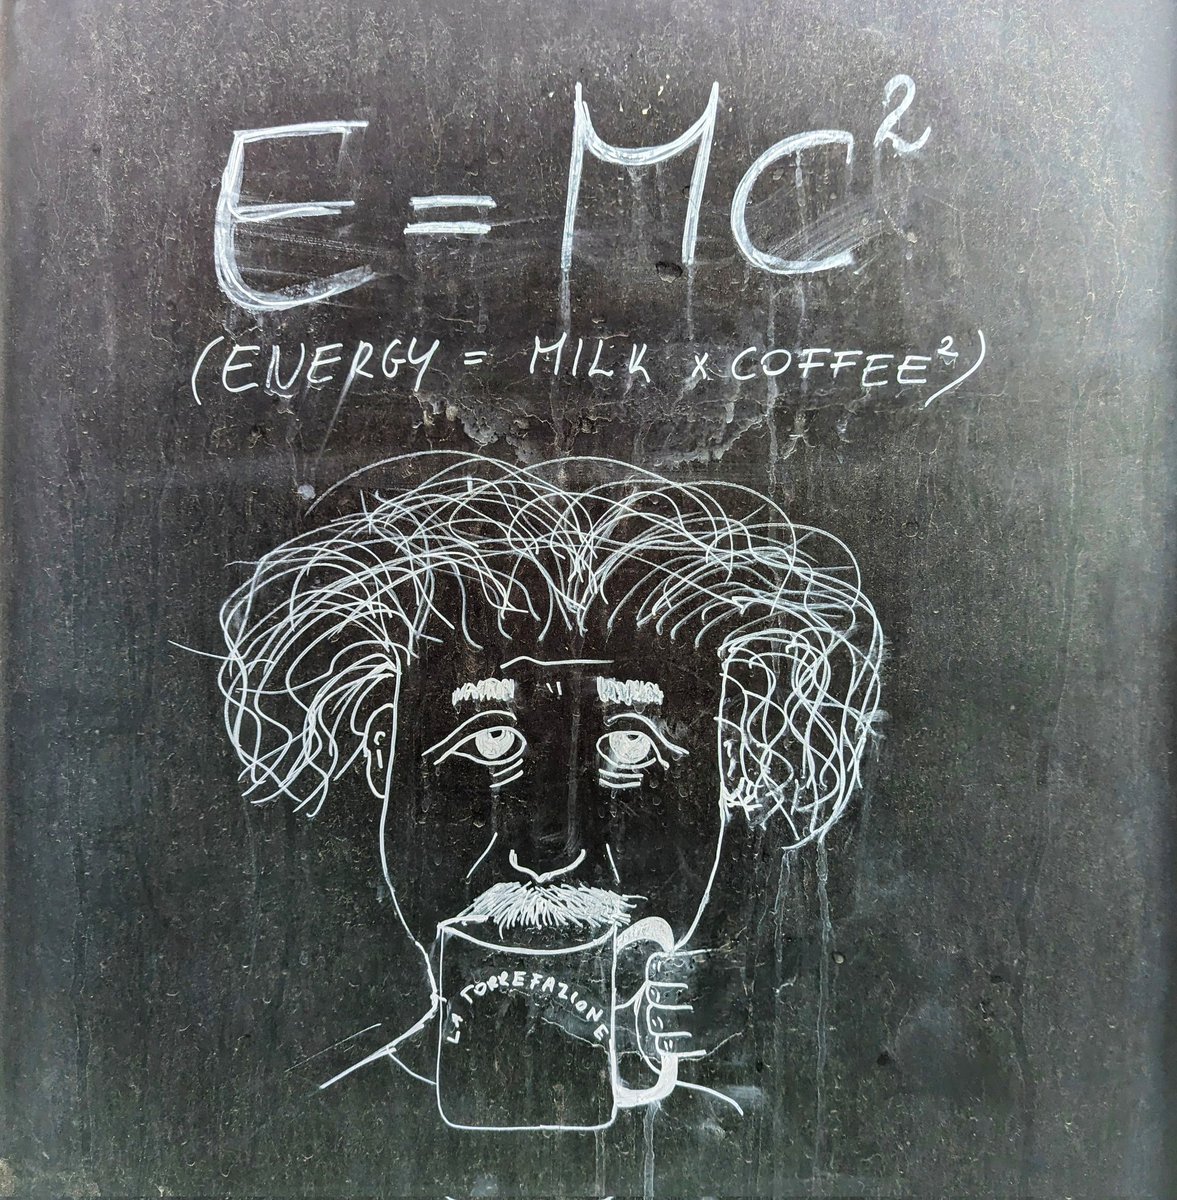 E = MC²
(ENERGY = MILK x COFFEE²)
LA TORREFAZIONE